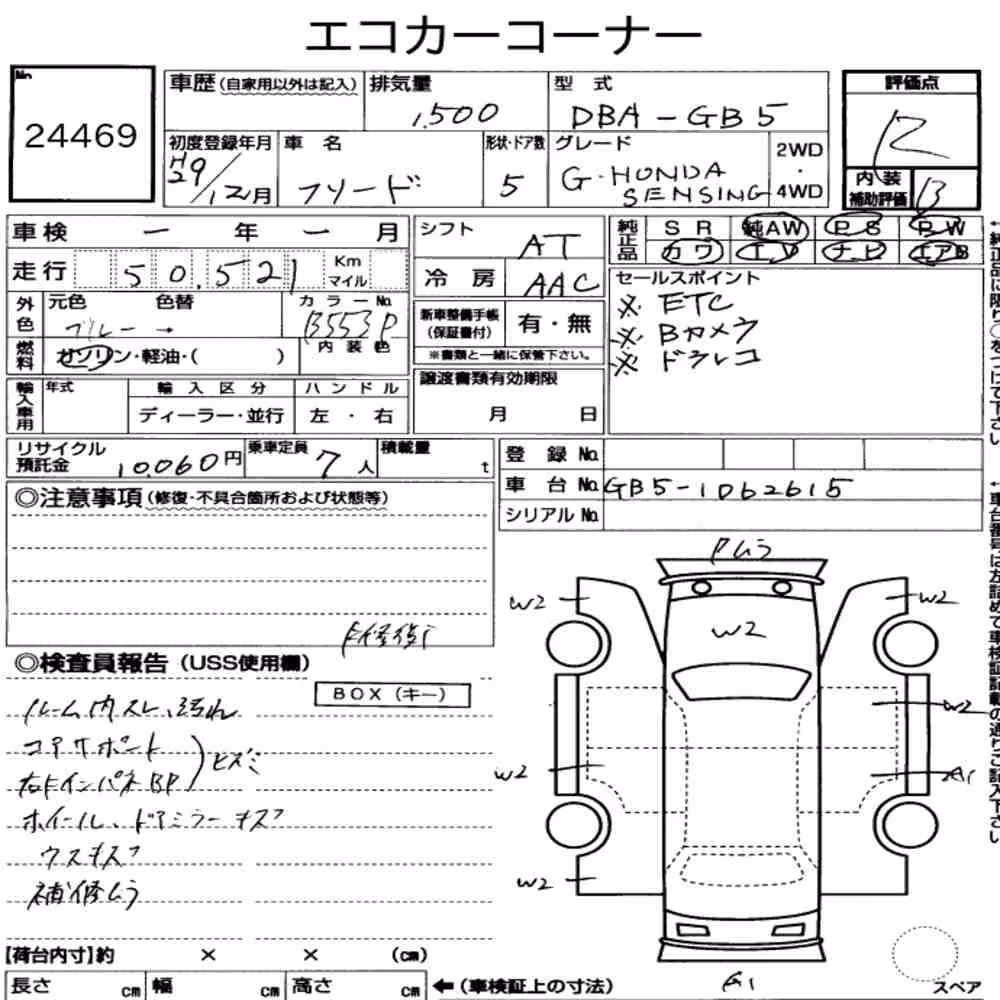 エコカーコーナー
No.
24469
車歴(自家用以外は記入)
排気量
1,500
型 式
DBA-GB5
評価点
R
初度登録年月
H29/12月
車 名
フリード
形状・ドア数
5
グレード
G・HONDA
SENSING
2WD
・
4WD
内 装
補助評価
B
車検 ー 年 ー 月
走行 50,521 Km マイル
シフト
AT
冷 房 AAC
純正品
SR 純AW PS PW
カワ TV ナビ エアB
外色
元色 色替
ブルー →
カラーNo.
B553P
内 装 色
燃料 ガソリン・軽油・( )
新車整備手帳
(保証書付)
有・無
※書類と一緒に保管下さい。
セールスポイント
※ ETC
※ Bカメラ
※ ドラレコ
輸入車用
年式
輸 入 区 分
ディーラー・並行
ハ ン ド ル
左 ・ 右
譲渡書類有効期限
月 日
リサイクル
預託金 10,060円
乗車定員 7人
積載量 t
登 録 No.
車 台 No. GB5-1062615
シリアル No.
◎注意事項(修復・不具合箇所および状態等)
◎検査員報告(USS使用欄)
BOX(キー)
ルーム内スレ、汚れ
コアサポート
右F インパネBP
ヒズミ
ホイール、ドアミラーキズ
ウスキズ
補修ムラ
Pムラ
W2
W2
W2
W2
W2
A1
W2
G1
スペア
【荷台内寸】約 × × (cm)
長さ cm 幅 cm 高さ cm
←(車検証上の寸法)
←純正品に限り○をつけて下さい
←車台番号は左詰めで車検証記載の通りご記入下さい